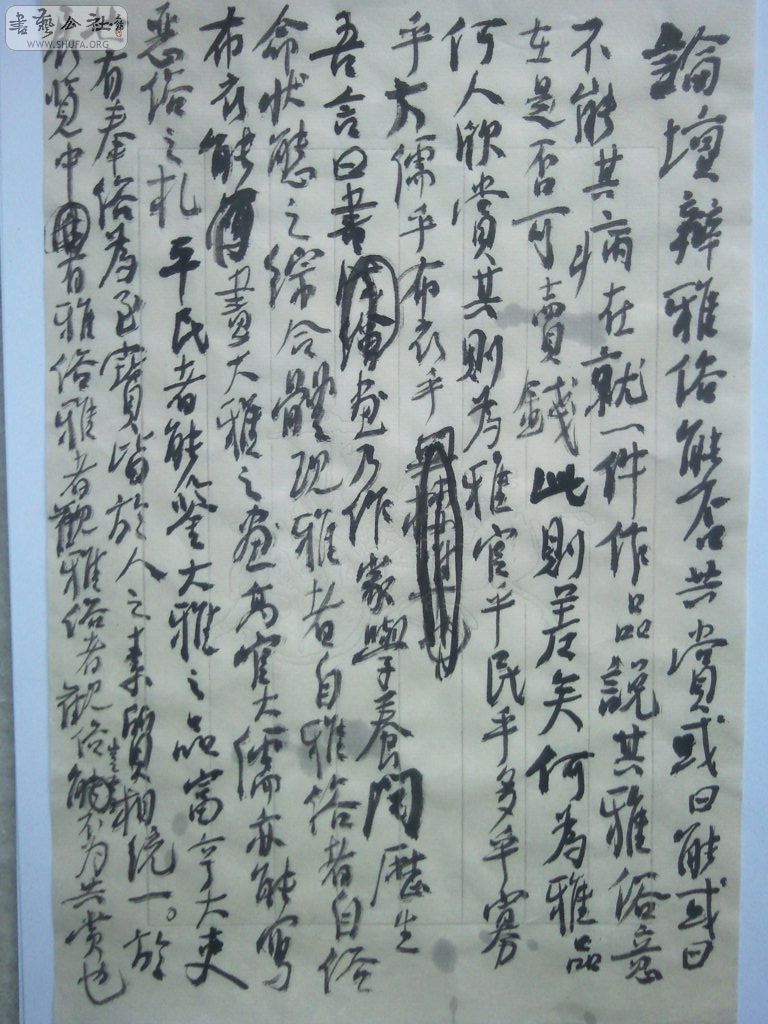 論壇辯雅俗能否共賞或曰能或曰
不能其病在就一件作品說其雅俗意
在是否可賣錢此則差矣何為雅品
何人欣賞其則為雅官乎民乎多乎寡
乎大儒乎布衣乎
吾言曰書畫乃作家學養閱歷生
命狀態之綜合體現雅者自雅俗者自俗
布衣能書大雅之畫高官大儒亦能寫
惡俗之札平民者能鑒大雅之品富亨大吏
有奉俗為至寶皆於人之素質相統一。故
觉中國有雅俗雅者觀雅俗者觀俗能不為共賞也
書藝公社
WWW.SHUFA.ORG